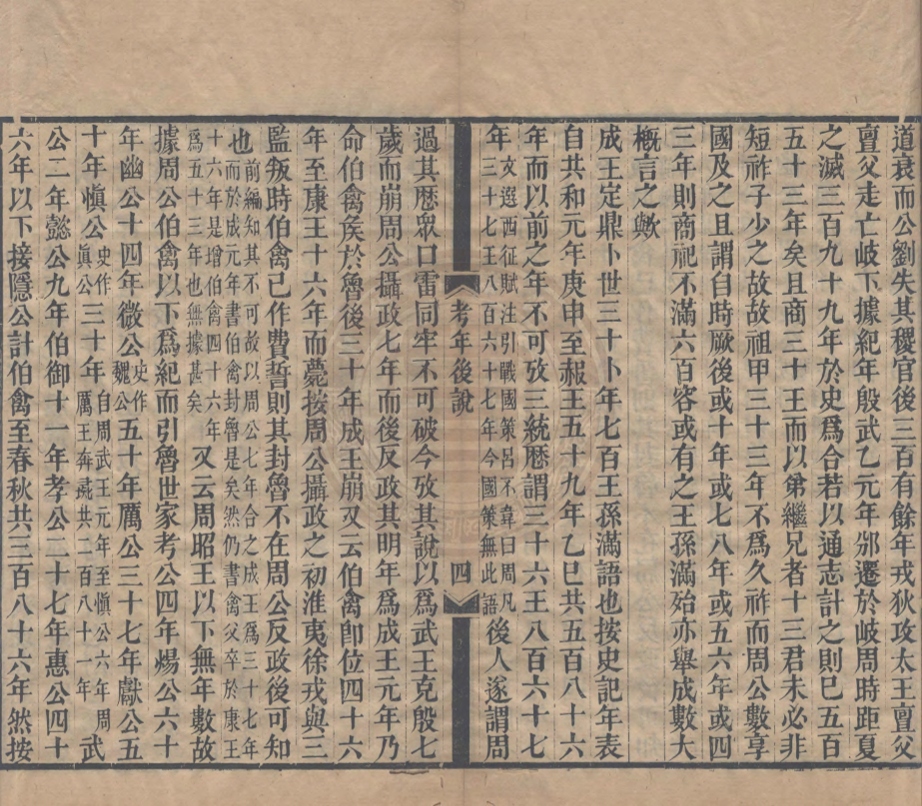 道衰而公劉失其稷官後三百有餘年戎狄攻太王亶父
亶父走亡岐下據紀年殷武乙元年邠遷於岐周時距夏
之滅三百九十九年於史爲合若以通志計之則已五百
五十三年矣且商三十王而以弟繼兄者十三君未必非
短祚子少之故故祖甲三十三年不爲久祚而周公數享
國及之且謂自時厥後或十年或七八年或五六年或四
三年則商祀不滿六百容或有之王孫滿殆亦舉成數大
槪言之歟
成王定鼎卜世三十卜年七百王孫滿語也按史記年表
自共和元年庚申至赧王五十九年乙巳共五百八十六
年而以前之年不可攷三統曆謂三十六王八百六十七
年文選西征賦注引戰國策呂不韋曰周凡三十七王八百六十七年今國策無此語後人遂謂周
考年後說 四
過其歷衆口雷同牢不可破今攷其說以爲武王克殷七
歲而崩周公攝政七年而後反政其明年爲成王元年乃
命伯禽矦於魯後三十年成王崩又云伯禽卽位四十六
年至康王十六年而薨按周公攝政之初淮夷徐戎與三
監叛時伯禽已作費誓則其封魯不在周公反政後可知
也前編知其不可故以周公七年合之成王爲三十七年而於成元年書伯禽封魯是矣然仍書禽父卒於康王十六年是增伯禽四十六年爲五十三年也無據甚矣又云周昭王以下無年數故
據周公伯禽以下爲紀而引魯世家考公四年煬公六十
年幽公十四年微公史作魏公五十年厲公三十七年獻公五
十年愼公史作眞公三十年自周武王元年至愼公六年周厲王奔彘共二百八十一年武
公二年懿公九年伯御十一年孝公二十七年惠公四十
六年以下接隱公計伯禽至春秋共三百八十六年然按